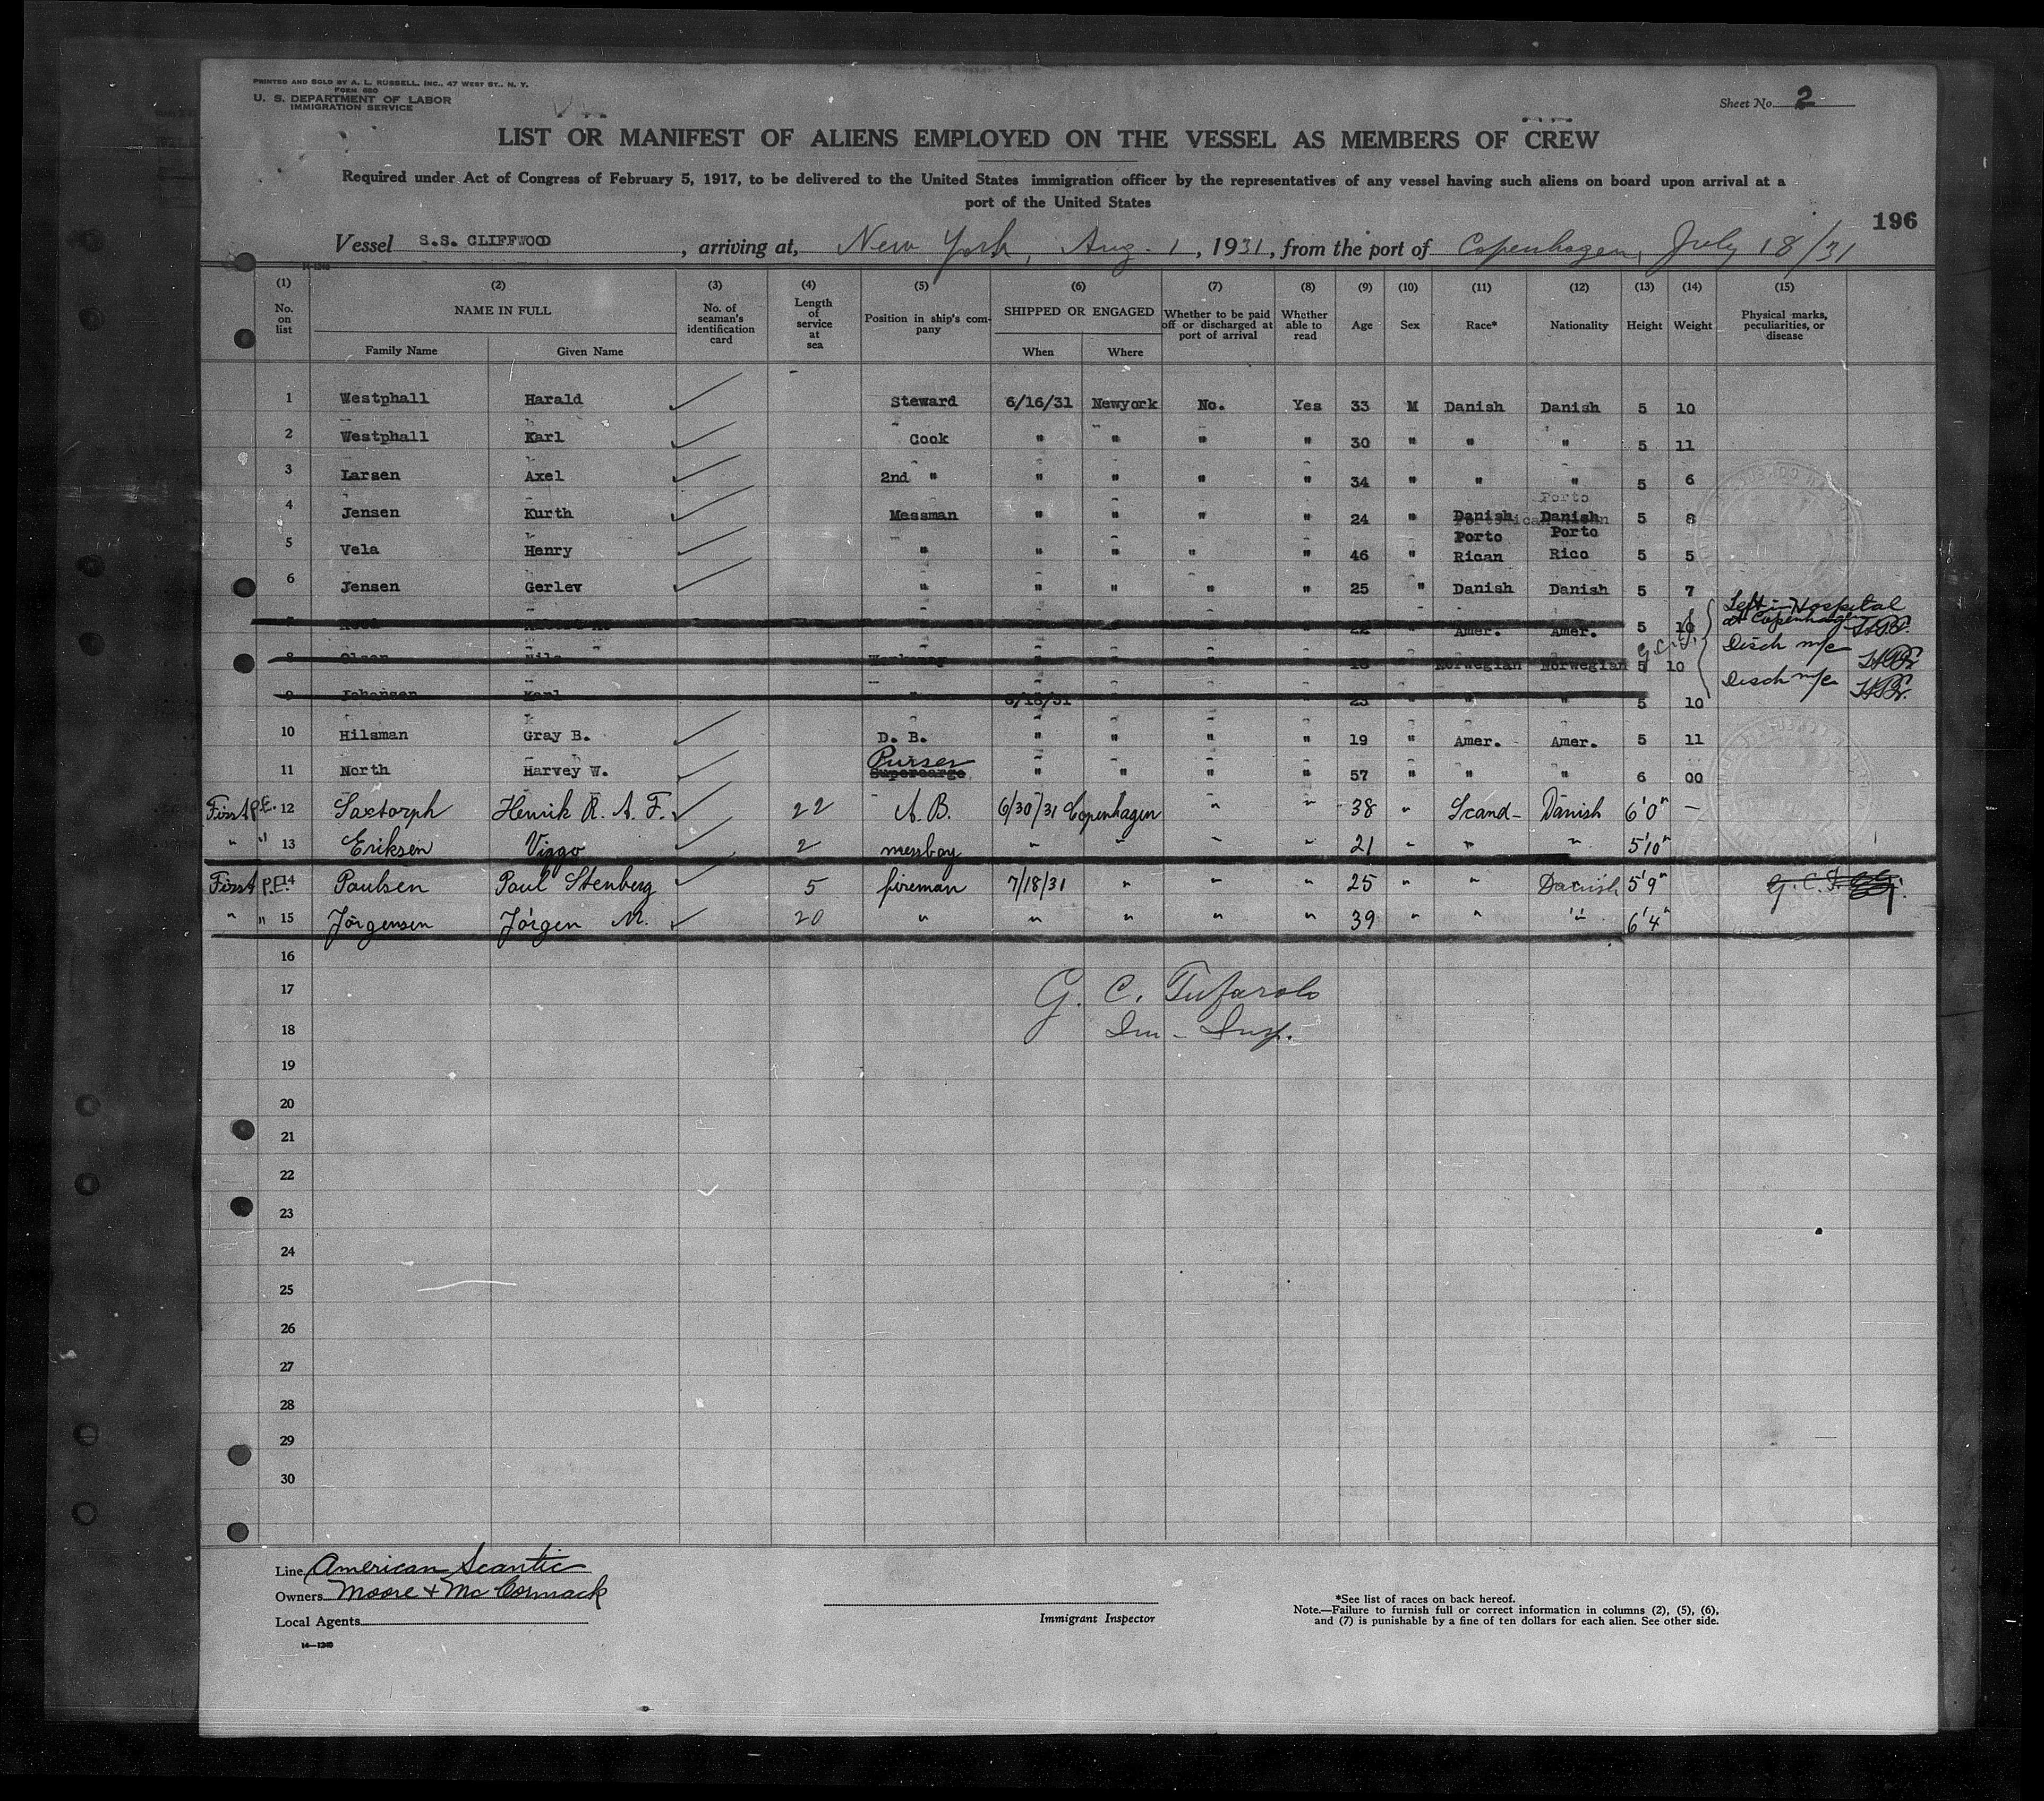 PRINTED AND SOLD BY A. L. RUSSELL, INC., 47 WEST ST., N. Y.
FORM 680
U. S. DEPARTMENT OF LABOR
IMMIGRATION SERVICE
Sheet No. 2
LIST OR MANIFEST OF ALIENS EMPLOYED ON THE VESSEL AS MEMBERS OF CREW
Required under Act of Congress of February 5, 1917, to be delivered to the United States immigration officer by the representatives of any vessel having such aliens on board upon arrival at a
port of the United States
196
Vessel S.S. CLIFFWOOD, arriving at, New York, Aug. 1, 1931, from the port of Copenhagen, July 18/31
14-1240
(1) (2) (3) (4) (5) (6) (7) (8) (9) (10) (11) (12) (13) (14) (15)
No. on list NAME IN FULL No. of seaman's identification card Length of service at sea Position in ship's company SHIPPED OR ENGAGED Whether to be paid off or discharged at port of arrival Whether able to read Age Sex Race* Nationality Height Weight Physical marks, peculiarities, or disease
Family Name Given Name When Where
1 Westphall Harald Steward 6/16/31 Newyork No. Yes 33 M Danish Danish 5 10
2 Westphall Karl Cook " " " " 30 " " " 5 11
3 Larsen Axel 2nd " " " " " 34 " " " 5 6
4 Jensen Kurth Messman " " " " 24 " Danish Danish 5 8
5 Vela Henry " " " " " 46 " Porto Rican Porto Rico 5 5
6 Jensen Gerlev " " " " " 25 " Danish Danish 5 7
7 22 Amer. Amer. 5 10 Left in Hospital at Copenhagen
8 Olsen Nils Workaway 18 Norwegian Norwegian 5 10 Disch m/c
9 Johansen Karl " 6/18/31 23 " " 5 10 Disch m/c
10 Hilsman Gray B. D. B. " " " " 19 " Amer. Amer. 5 11
11 North Harvey W. Purser Supercargo " " " " 57 " " " 6 00
First P.E. 12 Saxtorph Henrik R. A. F. 22 A.B. 6/30/31 Copenhagen " " 38 " Scand- Danish 6'0" -
" " 13 Eriksen Viggo 2 messboy " " " " 21 " " " 5'10"
First P.E. 14 Paulsen Paul Stenberg 5 fireman 7/18/31 " " " 25 " " Danish 5'9"
" " 15 Jörgensen Jörgen M. 20 " " " " " 39 " " " 6'4"
16
17 G. C. Tufarolo
18 Im - Insp.
19
20
21
22
23
24
25
26
27
28
29
30
Line American Scantic
Owners Moore + Mc Cormack
Local Agents
14-1240
Immigrant Inspector
*See list of races on back hereof.
Note.—Failure to furnish full or correct information in columns (2), (5), (6),
and (7) is punishable by a fine of ten dollars for each alien. See other side.